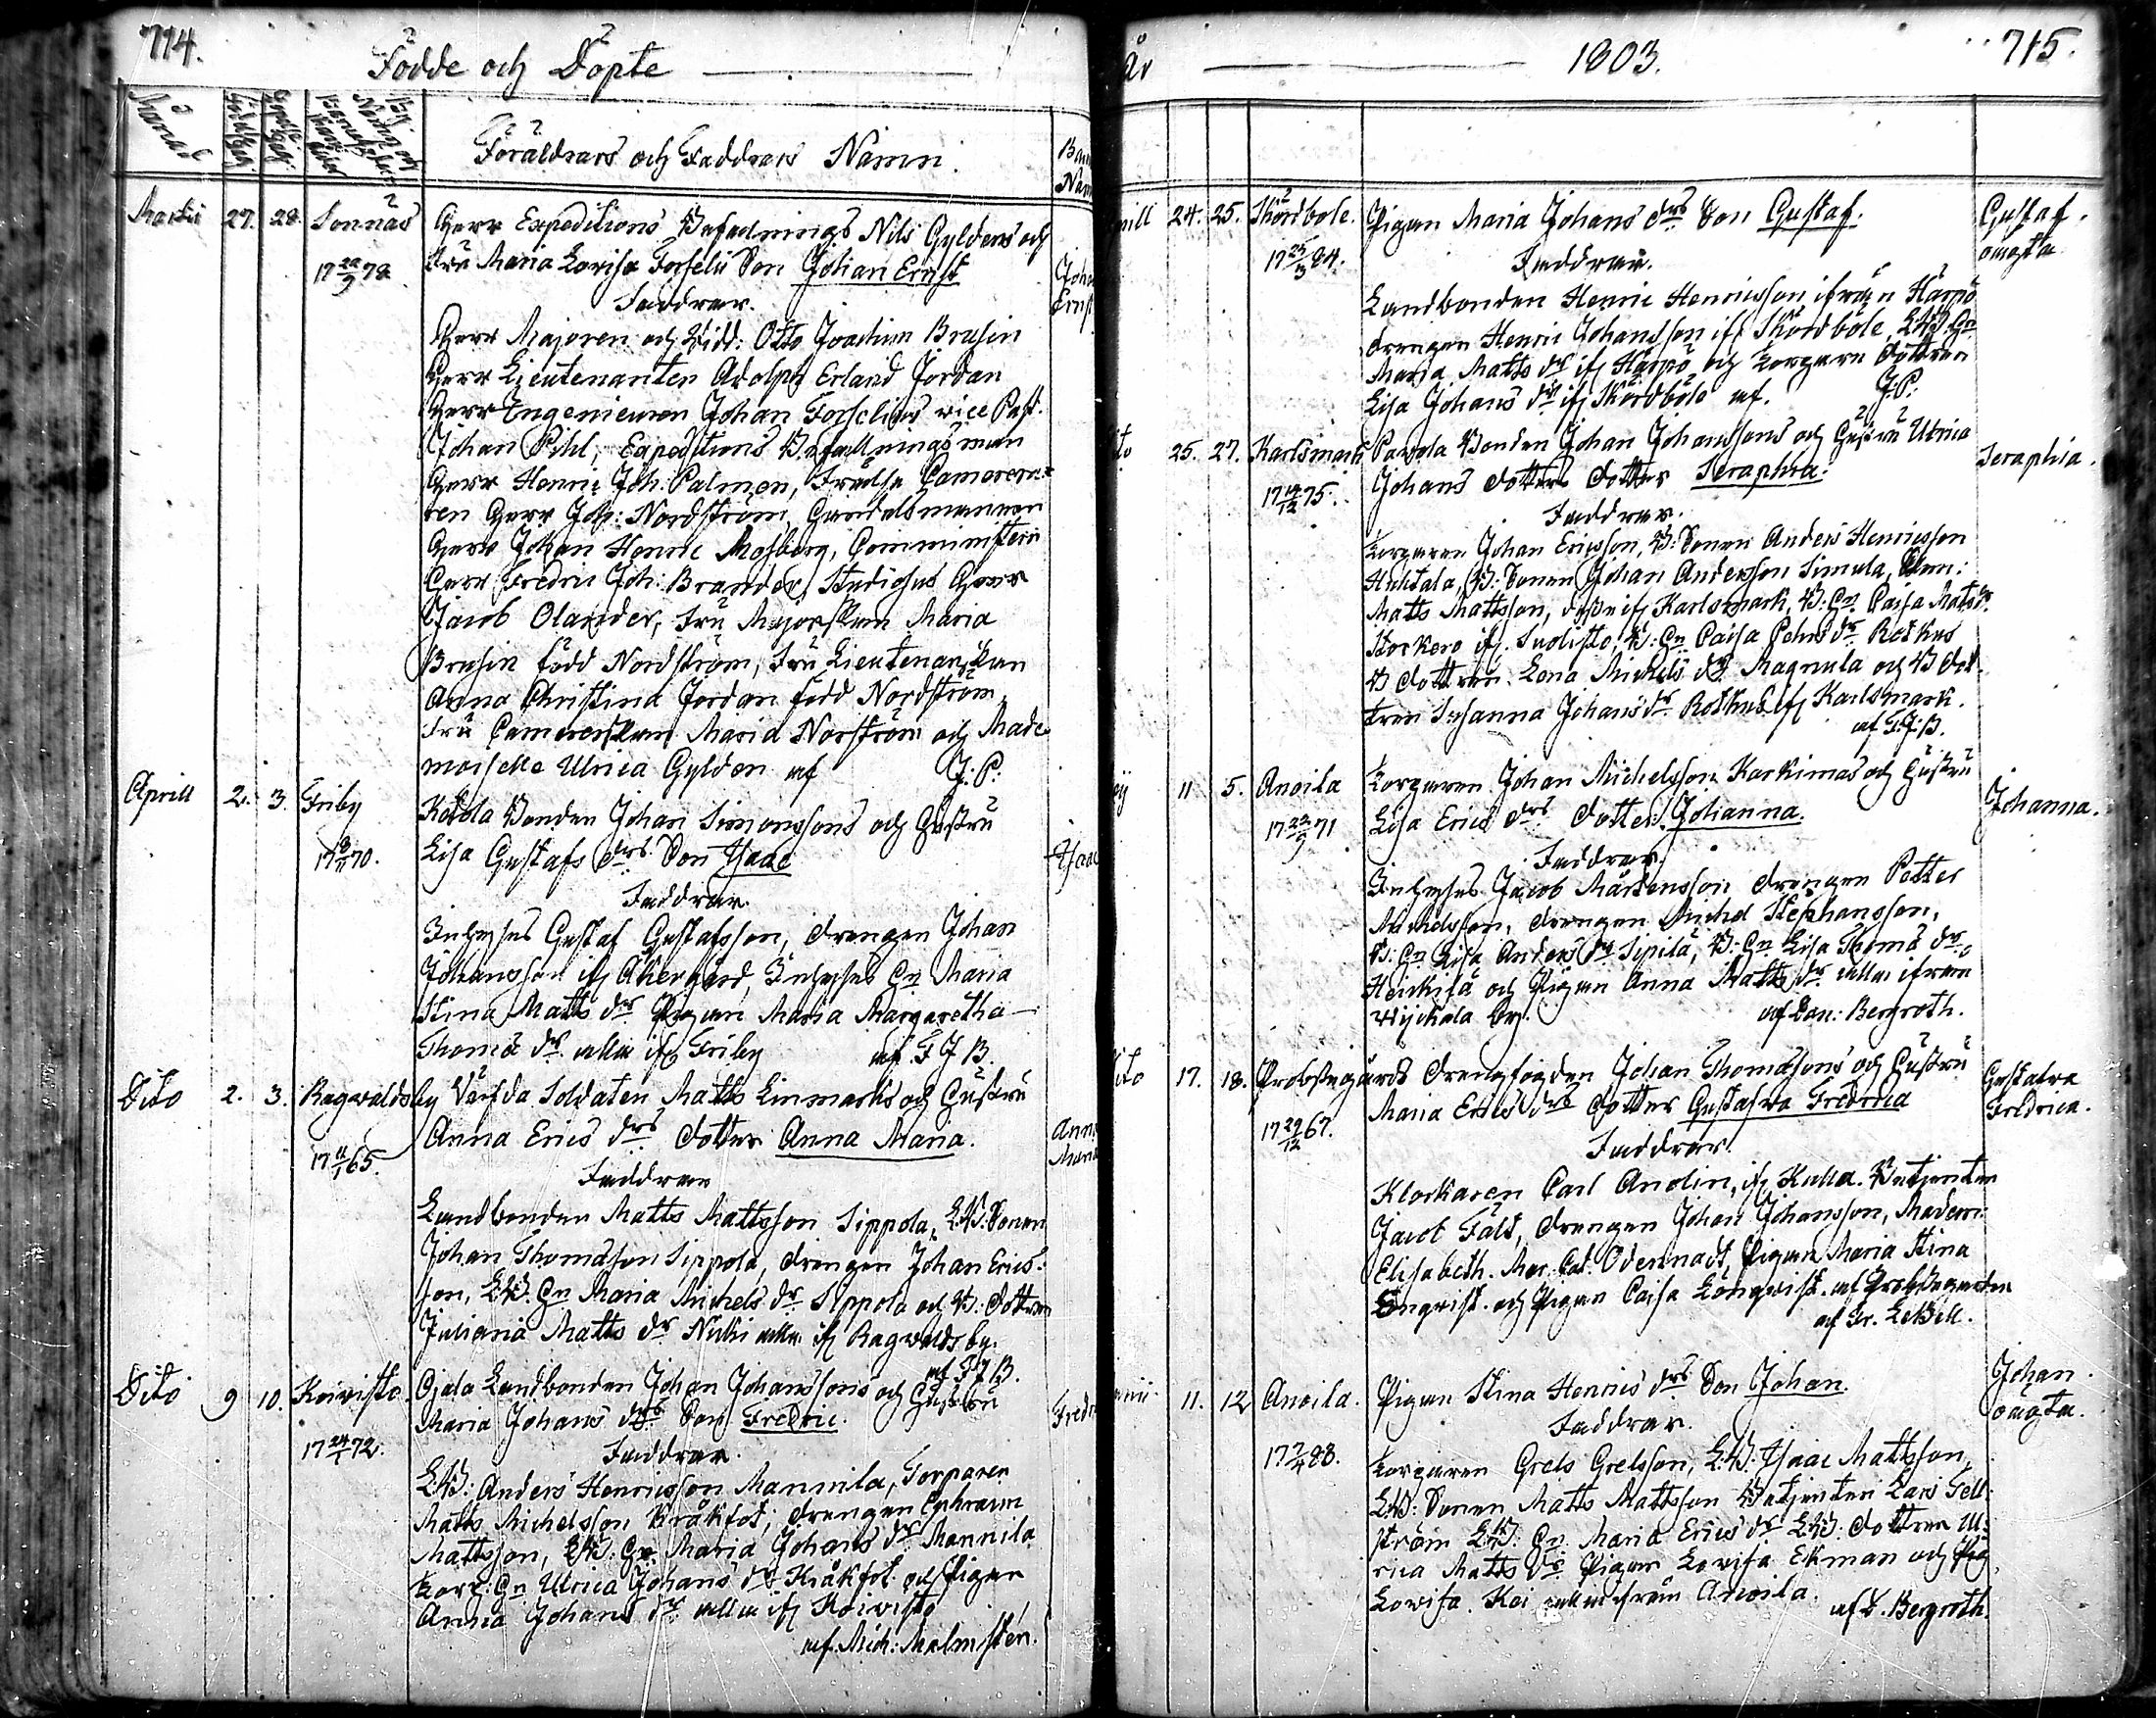 714.
Födde och Döpte
Månad
Födelse dag
Föräldrars och Faddrars Namn.
Martii 27. 28. Sonnäs Herr Expeditions Befadnings Nils Gyldens och
17 78 Fru Maria Lovisa Forselii Son Johan Ernst
Faddrar.
Herr Majoren och Ridd: Otto Joachim Brusin
Herr Lieutenanten Adolph Erland Jordan
Herr Ingenieuren Johan Forselius vice Past.
Johan Pihl, Expeditions Befallningsman
Herr Henric Joh: Palmen, Frälse Camerera-
ren Herr Joh: Nordström, Handelsmannen
Herr Johan Henric Mosberg, Comministern
Herr Fredric Joh: Brander, Studiosus Herr
Jacob Olander, Fru Majorskan Maria
Brusin född Nordström, Fru Lieutenanskan
Anna Christina Jordan född Nordström,
Fru Camererskan Maria Norström och Made-
moiselle Ulrica Gylden af J: P:
Aprill 2. 3. Friby Kotola Bonden Johan Simonssons och Hustru
17 70. Lisa Gustafs drs Son Isaac
Faddrar.
Inhyses Gustaf Gustafsson, drengen Johan
Johansson ifr Åkergård, Inhyses Hu Maria
Stina Matts dr Pigan Maria Margaretha
Thomæ dr alla ifr Friby af F J B.
Dito 2. 3. Ragvaldsby Värfda Soldaten Matts Linmarks och Hustru
17 11/1 65. Anna Erics drs dotter Anna Maria.
Faddrar
Landbonden Matts Mattsson Sippola, L:B: Sonen
Johan Thomasson Sippola, drengen Johan Erics-
son, L:B: Hu Maria Michels dr Sippola och B: dottren
Juliana Matts dr Nicki alla ifr Ragvaldsby.
af F J B.
Dito 9 10. Koivisto Ojala Landbonden Johan Johanssons och Hustru
17 24/1 72. Maria Johans drs Son Fredric.
Faddrar.
L:B: Anders Henricsson Mannila, Torparen
Matts Michelsson Kråkfot, drengen Ephraim
Mattsson, L:B: Hu Maria Johans dr Mannila
Torp: Hu Ulrica Johans dr Kråkfot och Pigan
Anna Johans dr alla ifr Koivisto
af Mich: Malmstén.
år 1803. 715.
24. 25. Skördböle. Pigan Maria Johans drs Son Gustaf. Gustaf.
17 84. Faddrar. oäagta
Landbonden Henric Henricsson ifrån Härpö
drengen Henric Johansson ifr Skördböle, L:B: Hu
Maria Matts dr ifr Härpö och Torpare dottren
Lisa Johans dr ifr Skördböle af. J: P:
25. 27. Karlsmark Pavola Bonden Johan Johanssons och Hustru Ulrica Seraphia.
17 14/12 75. Johans dotters dotter Seraphia.
Faddrar.
Torparen Johan Ericsson, B: Sonen Anders Henricsson
Huhtala, B: Sonen Johan Andersson Simula,
Matts Mattsson, ifr Karlsmark, B: Hu Caisa Mats dr
Storkero ifr Suolisto, B: Hu Caisa Pehrs dr Rotkus
B dottren Lena Michels dr Magnula och B dot-
tren Susanna Johans dr Rotkus ifr Karlsmark.
af F: J: B.
11 5. Anoila Torparen Johan Michelsson Karkimas och Hustru Johanna.
17 71 Lisa Erics drs dotter Johanna.
Faddrar.
Inhyses Jacob Mårtensson drengen Petter
Michelsson, drengen Michel Stephansson,
B: Hu Lisa Anders dr Sipilä, B: Hu Lisa Thomæ dr
Heickilä och Pigan Anna Matts dr alla ifrån
by. af Dan: Bergroth.
17. 18. Probstegårds drengfogden Johan Thomassons och Hustru Gustafva
17 29/12 67. Maria Erics drs dotter Gustafva Fredrica Fredrica.
Faddrar.
Klockaren Carl Anolin, ifr Kulla. Betjenten
Jacob Fält, drengen Johan Johansson, Madem:
Elisabeth Mar. Cat. Odennadt, Pigan Maria Stina
Engvist och Pigan Caisa Lönqvist af Probstegården
af Gr. LeBell.
11. 12 Anoila. Pigan Stina Henrics drs Son Johan. Johan.
17 7/4 88. Faddrar. oäagta.
Torparen Grels Grelsson, L:B: Isaac Mattsson,
L:B: Sonen Matts Mattsson Betjenten Lars Fell-
ström L:B: Hu Maria Erics dr L:B: dottren Ul-
rica Matts dr Pigan Lovisa Ekman och Pig
Lovisa Koi alla ifrån Anoila.
af D. Bergroth.